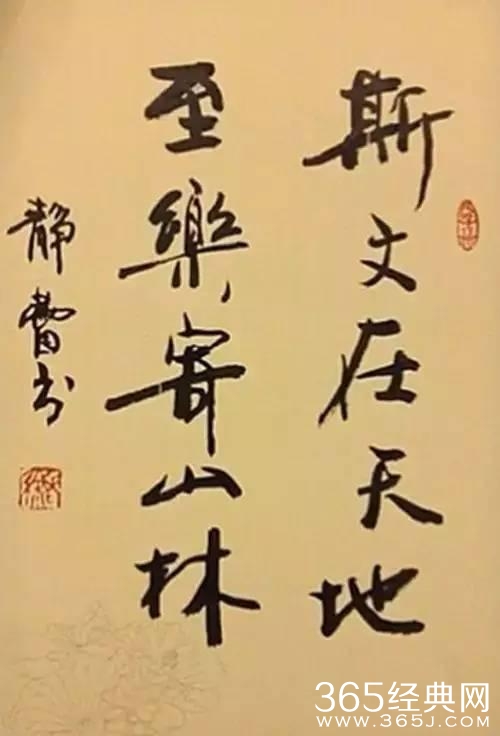 斯文在天地
至樂寄山林
静書
365经典网
WWW.365J.COM